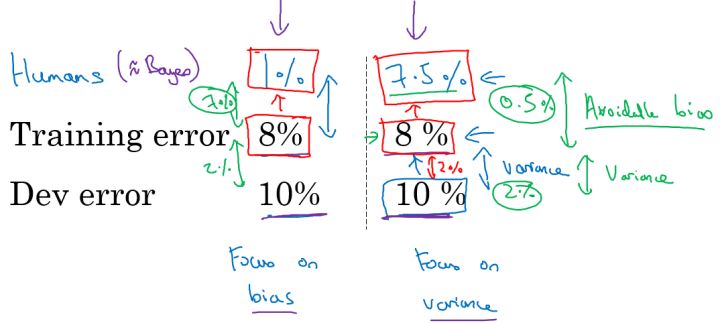 Humans (≈ Bayes) 1% 7.5%
7% 0.5% Avoidable bias
Training error 8% 8 %
2% 2% variance Variance
Dev error 10% 10 % 2%
Focus on bias
Focus on variance